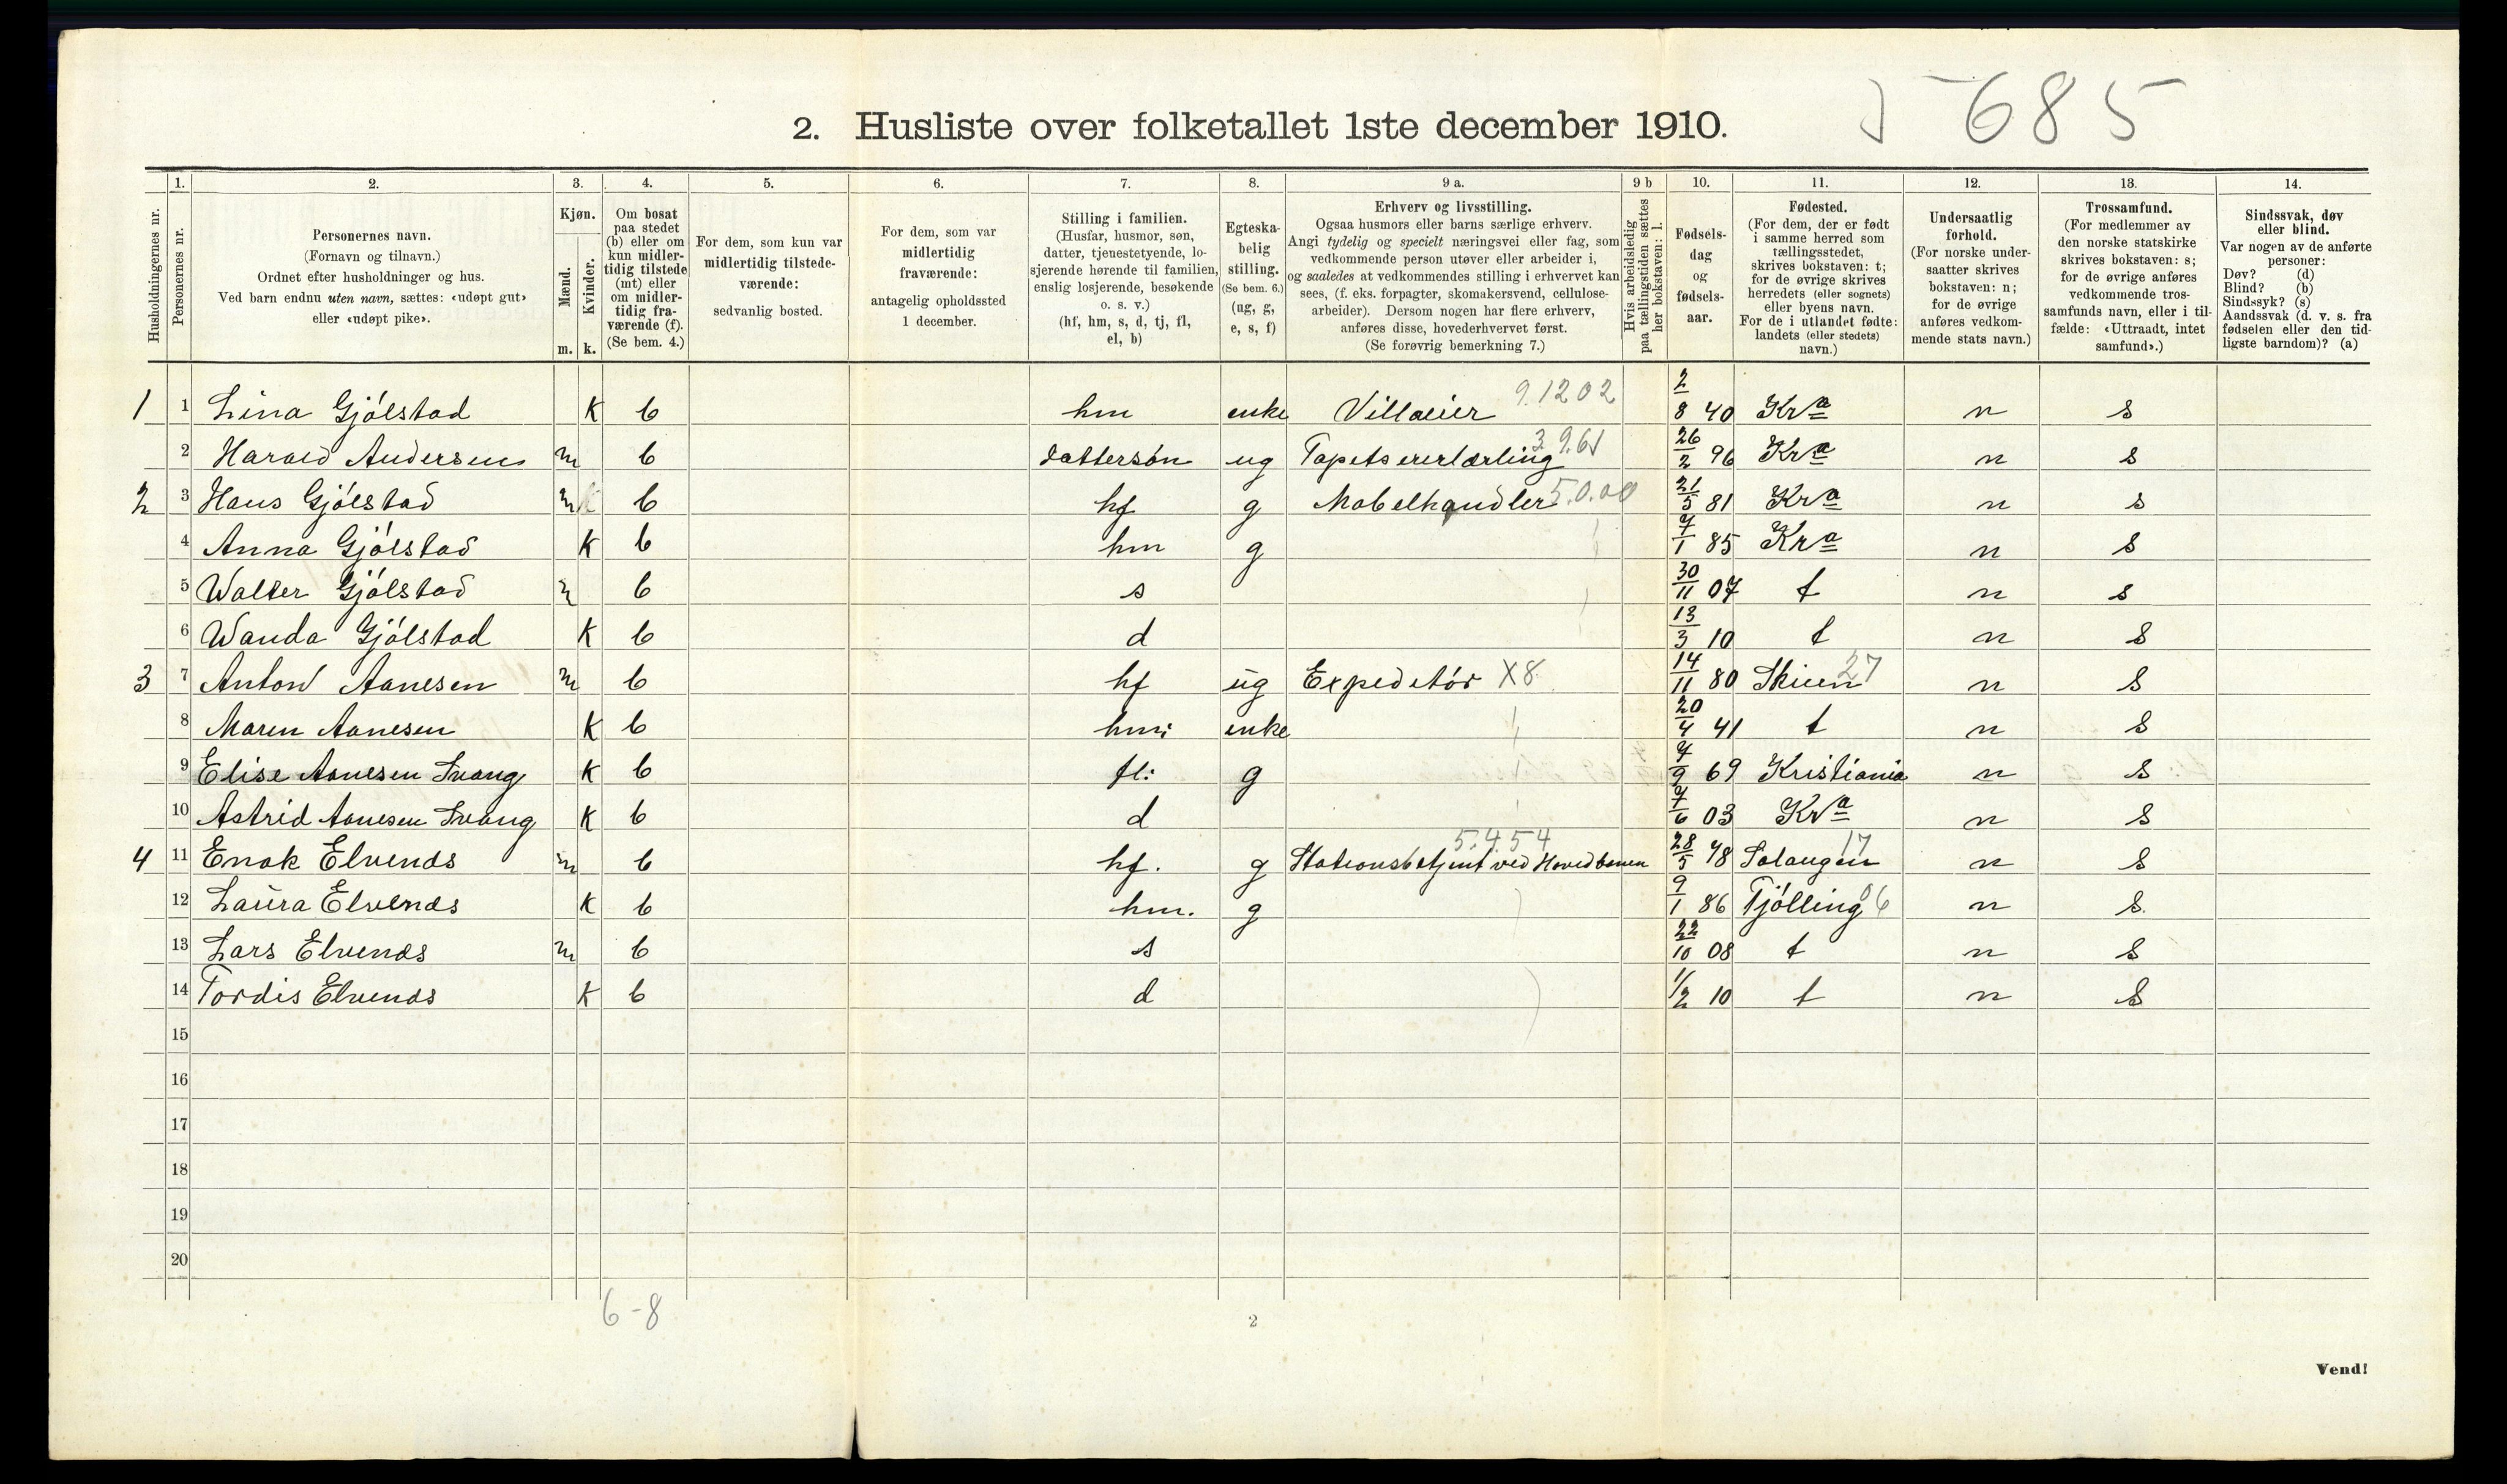 5 685
2. Husliste over folketallet 1ste december 1910.
Husholdningernes nr.
Personernes nr.
1. 2. 3. 4. 5. 6. 7. 8. 9 a. 9 b 10. 11. 12. 13. 14.
Personernes navn.
(Fornavn og tilnavn.)
Ordnet efter husholdninger og hus.
Ved barn endnu uten navn, sættes: «udøpt gut»
eller «udøpt pike».
Kjøn.
Mænd.
Kvinder.
m. k.
Om bosat
paa stedet
(b) eller om
kun midler-
tidig tilstede
(mt) eller
om midler-
tidig fra-
værende (f).
(Se bem. 4.)
For dem, som kun var
midlertidig tilstede-
værende:
sedvanlig bosted.
For dem, som var
midlertidig
fraværende:
antagelig opholdssted
1 december.
Stilling i familien.
(Husfar, husmor, søn,
datter, tjenestetyende, lo-
sjerende hørende til familien,
enslig losjerende, besøkende
o. s. v.)
(hf, hm, s, d, tj, fl,
el, b)
Egteska-
belig
stilling.
(Se bem. 6.)
(ug, g,
e, s, f)
Erhverv og livsstilling.
Ogsaa husmors eller barns særlige erhverv.
Angi tydelig og specielt næringsvei eller fag, som
vedkommende person utøver eller arbeider i,
og saaledes at vedkommendes stilling i erhvervet kan
sees, (f. eks. forpagter, skomakersvend, cellulose-
arbeider). Dersom nogen har flere erhverv,
anføres disse, hovederhvervet først.
(Se forøvrig bemerkning 7.)
Hvis arbeidsledig
paa tællingstiden sættes
her bokstaven: l.
Fødsels-
dag
og
fødsels-
aar.
Fødested.
(For dem, der er født
i samme herred som
tællingsstedet,
skrives bokstaven: t;
for de øvrige skrives
herredets (eller sognets)
eller byens navn.
For de i utlandet fødte:
landets (eller stedets)
navn.)
Undersaatlig
forhold.
(For norske under-
saatter skrives
bokstaven: n;
for de øvrige
anføres vedkom-
mende stats navn.)
Trossamfund.
(For medlemmer av
den norske statskirke
skrives bokstaven: s;
for de øvrige anføres
vedkommende tros-
samfunds navn, eller i til-
fælde: «Uttraadt, intet
samfund».)
Sindssvak, døv
eller blind.
Var nogen av de anførte
personer:
Døv? (d)
Blind? (b)
Sindssyk? (s)
Aandssvak (d. v. s. fra
fødselen eller den tid-
ligste barndom)? (a)
1 1 Lina Gjölstad K b hm enke Villaeier 9.1202 2/8 40 Kra n s
2 Harald Andersen m b dattersön ug Tapetsererlærling 3.9.61 26/2 96 Kra n s
2 3 Hans Gjölstad m b hf g Mobelhandler 5.0.00 21/5 81 Kra n s
4 Anna Gjölstad K b hm g 7/1 85 Kra n s
5 Walter Gjölstad m b s 30/11 07 t n s
6 Wanda Gjölstad K b d 13/3 10 t n s
3 7 Anton Aanesen m b hf ug Expeditör X8 14/11 80 Skien 27 n s
8 Maren Aanesen K b hm: enke 20/4 41 t n s
9 Elise Aanesen Svang K b fl: g 4/9 69 Kristiania n s
10 Astrid Aanesen Svang K b d 7/6 03 Kra n s
4 11 Enok Elvenes m b hf. g Stationsbetjent ved Hovedbanen 5.4.54 28/5 78 Salangen 17 n s
12 Laura Elvenes K b hm. g 9/1 86 Tjölling 06 n s.
13 Lars Elvenes m b s 22/10 08 t n s
14 Tordis Elvenes K b d 1/2 10 t n s
15
16
17
18
19
20
6-8
2
Vend!